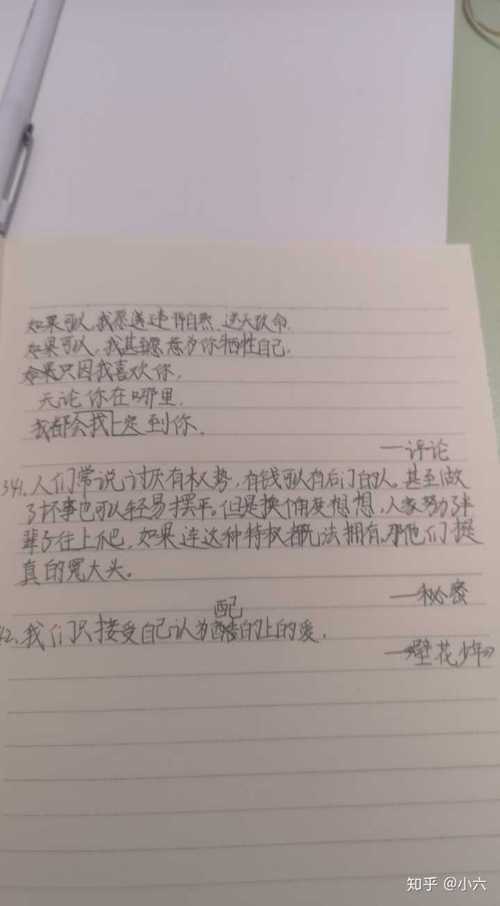 如果可以,我愿逆违背自然、逆天改命.
如果可以,我甚至愿意为你牺牲自己.
如果只因我喜欢你,
无论你在哪里.
我都会找上定到你.
—评论
341.人们常说讨厌有权势,有钱可以有后门的人,甚至做
了坏事也可以轻易摆平,但是换个角度想想,人家努力了半
辈子往上爬,如果连这种特权都无法拥有,那他们是
真的冤大头.
—秘密
配
42.我们只接受自己认为的上的爱.
—壁花少年
知乎 @小六